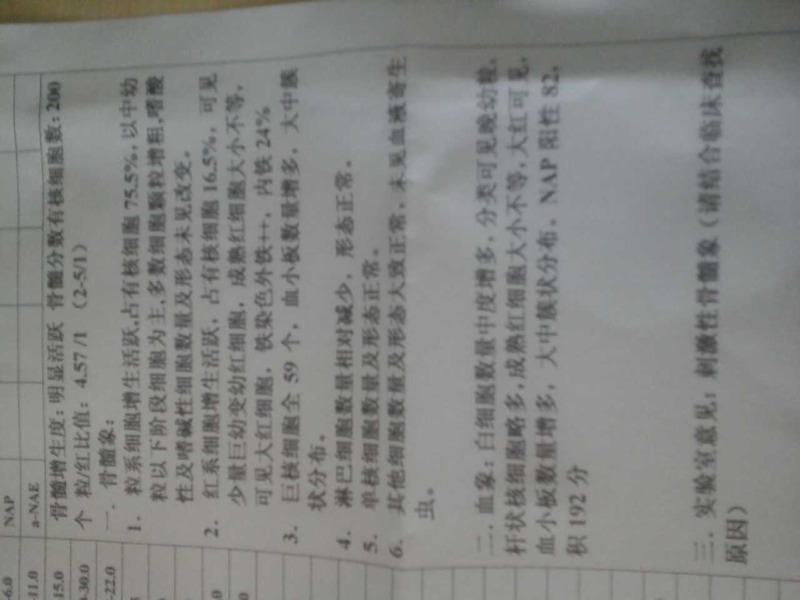 NAP
a-NAE
-6.0
-11.0
15.0
-30.0
-22.0
骨髓增生度：明显活跃 骨髓分数有核细胞数：200
个 粒/红比值：4.57/1 （2-5/1）
一．骨髓象：
1. 粒系细胞增生活跃,占有核细胞 75.5%，以中幼
粒以下阶段细胞为主,多数细胞颗粒增粗,嗜酸
性及嗜碱性细胞数量及形态未见改变。
2. 红系细胞增生活跃，占有核细胞 16.5%，可见
少量巨幼变幼红细胞，成熟红细胞大小不等，
可见大红细胞，铁染色外铁++，内铁 24%
3. 巨核细胞全 59 个，血小板数量增多，大中簇
状分布。
4. 淋巴细胞数量相对减少，形态正常。
5. 单核细胞数量及形态正常。
6. 其他细胞数量及形态大致正常，未见血液寄生
虫。
二．血象：白细胞数量中度增多，分类可见晚幼粒，
杆状核细胞略多，成熟红细胞大小不等，大红可见，
血小板数量增多，大中簇状分布。NAP 阳性 82，
积 192 分
三．实验室意见：刺激性骨髓象（请结合临床查找
原因）